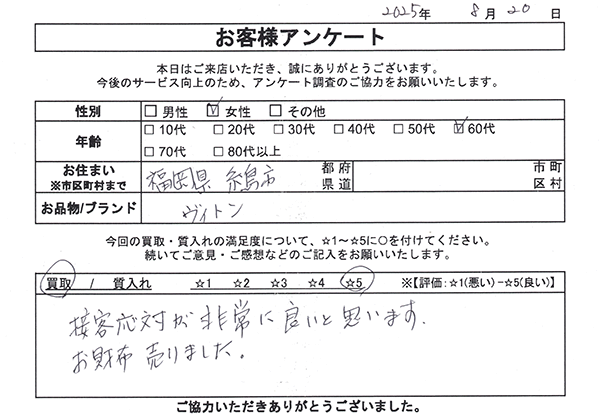 2025年 8月20日
お客様アンケート
本日はご来店いただき、誠にありがとうございます。
今後のサービス向上のため、アンケート調査のご協力をお願いいたします。
性別 □男性 ☑女性 □その他
年齢 □10代 □20代 □30代 □40代 □50代 ☑60代
□70代 □80代以上
お住まい ※市区町村まで 福岡県 糸島市 都府県道 市町区村
お品物/ブランド ヴィトン
今回の買取・質入れの満足度について、☆1～☆5に○を付けてください。
続いてご意見・ご感想などのご記入をお願いいたします。
買取 / 質入れ ☆1 ☆2 ☆3 ☆4 ☆5 ※【評価:☆1(悪い)-☆5(良い)】
接客応対が非常に良いと思います。
お財布売りました。
ご協力いただきありがとうございました。